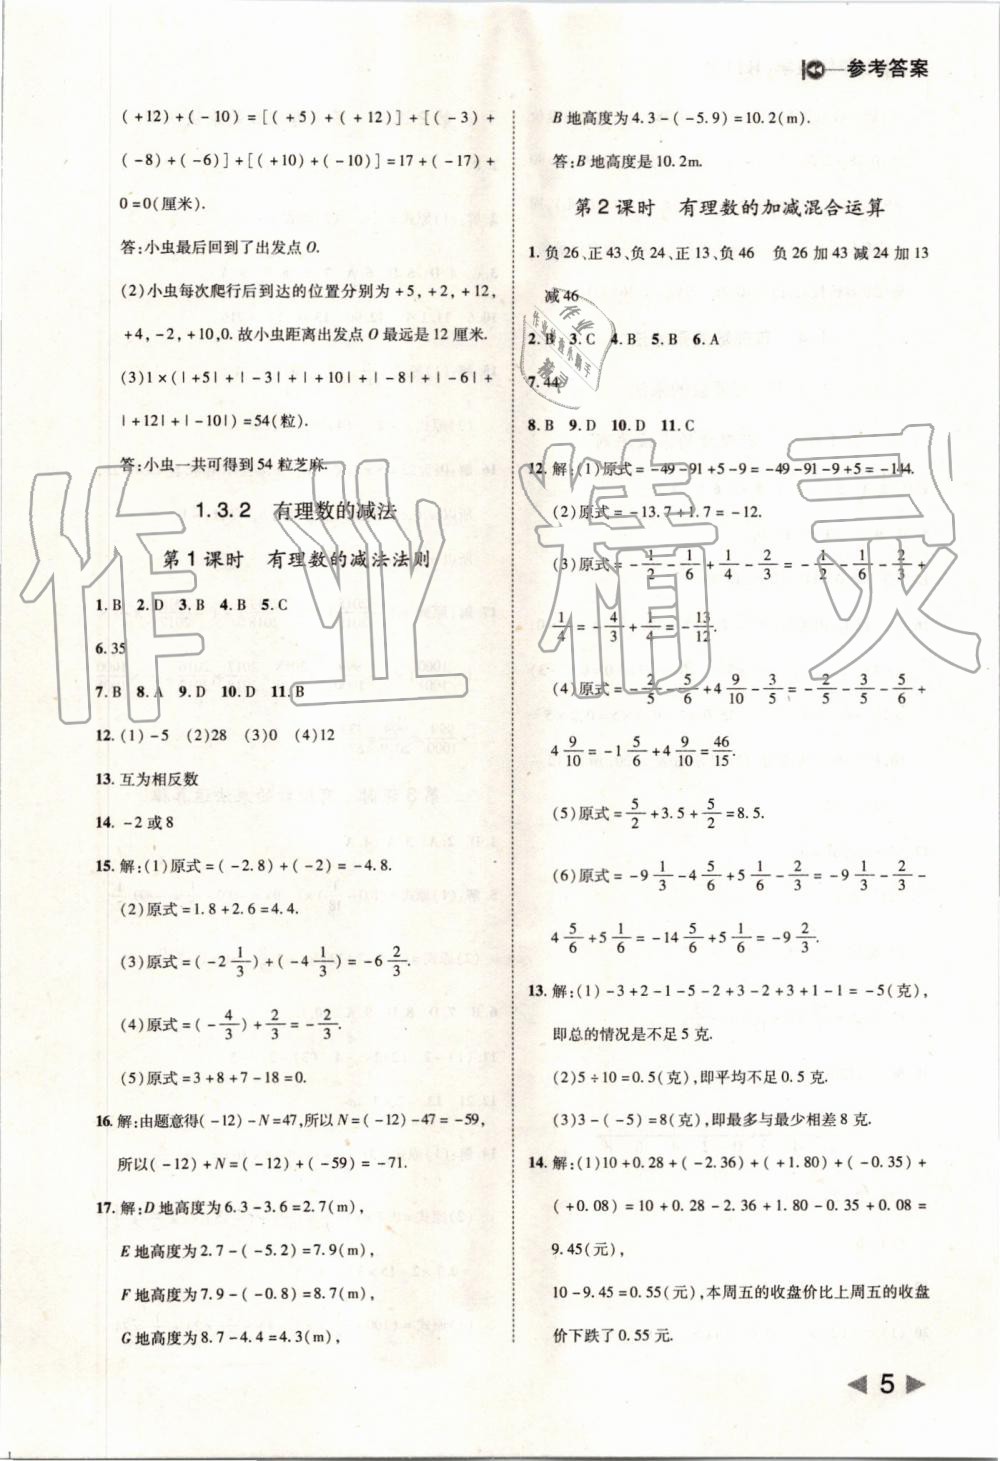 参考答案
(+12)+(-10)=[(+5)+(+12)]+[(-3)+
(-8)+(-6)]+[(+10)+(-10)]=17+(-17)+
0=0(厘米).
答:小虫最后回到了出发点O.
(2)小虫每次爬行后到达的位置分别为+5,+2,+12,
+4,-2,+10,0.故小虫距离出发点O最远是12厘米.
(3)1×(|+5|+|-3|+|+10|+|-8|+|-6|+
|+12|+|-10|)=54(粒).
答:小虫一共可得到54粒芝麻.
1.3.2 有理数的减法
第1课时 有理数的减法法则
1.B 2.D 3.B 4.B 5.C
6.35
7.B 8.A 9.D 10.D 11.B
12.(1)-5 (2)28 (3)0 (4)12
13.互为相反数
14.-2或8
15.解:(1)原式=(-2.8)+(-2)=-4.8.
(2)原式=1.8+2.6=4.4.
(3)原式=(-2 1/3)+(-4 1/3)=-6 2/3.
(4)原式=(-4/3)+2/3=-2/3.
(5)原式=3+8+7-18=0.
16.解:由题意得(-12)-N=47,所以N=(-12)-47=-59,
所以(-12)+N=(-12)+(-59)=-71.
17.解:D地高度为6.3-3.6=2.7(m),
E地高度为2.7-(-5.2)=7.9(m),
F地高度为7.9-(-0.8)=8.7(m),
G地高度为8.7-4.4=4.3(m),
B地高度为4.3-(-5.9)=10.2(m).
答:B地高度是10.2m.
第2课时 有理数的加减混合运算
1.负26、正43、负24、正13、负46 负26加43减24加13
减46
2.B 3.C 4.B 5.B 6.A
7.44
8.B 9.D 10.D 11.C
12.解:(1)原式=-49-91+5-9=-49-91-9+5=-144.
(2)原式=-13.7+1.7=-12.
(3)原式=-1/2-1/6+1/4-2/3=-1/2-1/6-2/3+
1/4=-4/3+1/4=-13/12.
(4)原式=-2/5-5/6+4 9/10-3/5=-2/5-3/5-5/6+
4 9/10=-1 5/6+4 9/10=46/15.
(5)原式=5/2+3.5+5/2=8.5.
(6)原式=-9 1/3-4 5/6+5 1/6=-9 1/3-
4 5/6+5 1/6=-14 5/6+5 1/6=-9 2/3.
13.解:(1)-3+2-1-5-2+3-2+3+1-1=-5(克),
即总的情况是不足5克.
(2)5÷10=0.5(克),即平均不足0.5克.
(3)3-(-5)=8(克),即最多与最少相差8克.
14.解:(1)10+0.28+(-2.36)+(+1.80)+(-0.35)+
(+0.08)=10+0.28-2.36+1.80-0.35+0.08=
9.45(元),
10-9.45=0.55(元),本周五的收盘价比上周五的收盘
价下跌了0.55元.
5
作业精灵